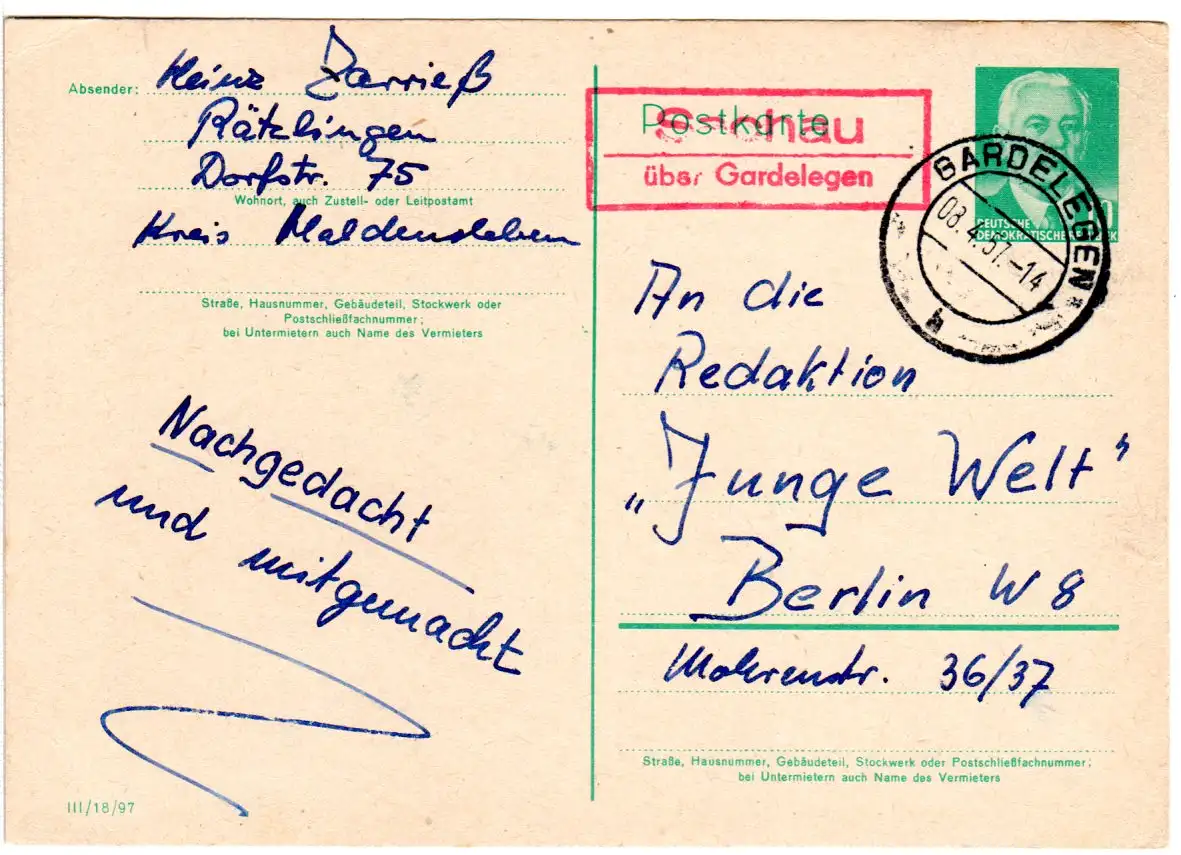 Absender: Heinz Zarrieß
Rätzlingen
Dorfstr. 75
Wohnort, auch Zustell- oder Leitpostamt
Kreis Haldensleben
Straße, Hausnummer, Gebäudeteil, Stockwerk oder
Postschließfachnummer;
bei Untermietern auch Name des Vermieters
Nachgedacht
und mitgemacht
III/18/97
Postkarte
über Gardelegen
DEUTSCHE
DEMOKRATISCHE REPUBLIK
GARDELEGEN
08.4.57.-14
h
An die
Redaktion
„Junge Welt"
Berlin W 8
Mohrenstr. 36/37
Straße, Hausnummer, Gebäudeteil, Stockwerk oder Postschließfachnummer;
bei Untermietern auch Name des Vermieters